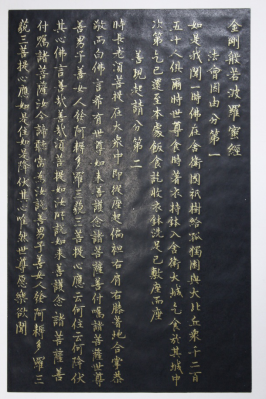 金剛般若波羅蜜經
法會因由分第一
如是我聞一時佛在舍衛國祇樹給孤獨園與大比丘衆千二百
五十人俱爾時世尊食時著衣持鉢入舍衛大城乞食於其城中
次第乞已還至本處飯食訖收衣鉢洗足已敷座而座
善現起請分第二
時長老須菩提在大衆中即從座起偏袒右肩右膝著地合掌恭
敬而白佛言希有世尊如來善護念諸菩薩善付囑諸菩薩世尊
善男子善女人發阿耨多羅三藐三菩提心應云何住云何降伏
其心佛言善哉善哉須菩提如汝所說如來善護念諸菩薩善
付囑諸菩薩汝今諦聽當為汝說善男子善女人發阿耨多羅三
藐三菩提心應如是住如是降伏其心唯然世尊願樂欲聞